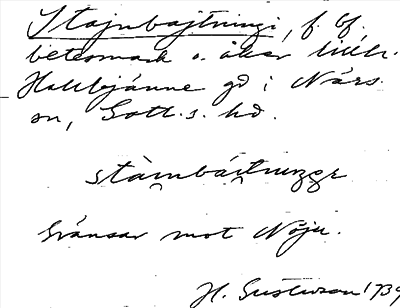 Stajnbajtningi, f. bf.
betesmark o. åker
Hallbjänne gd i När s.
sn, Gotl. s. hd.
gränsar mot Nöju.
H. Gustavson 1939